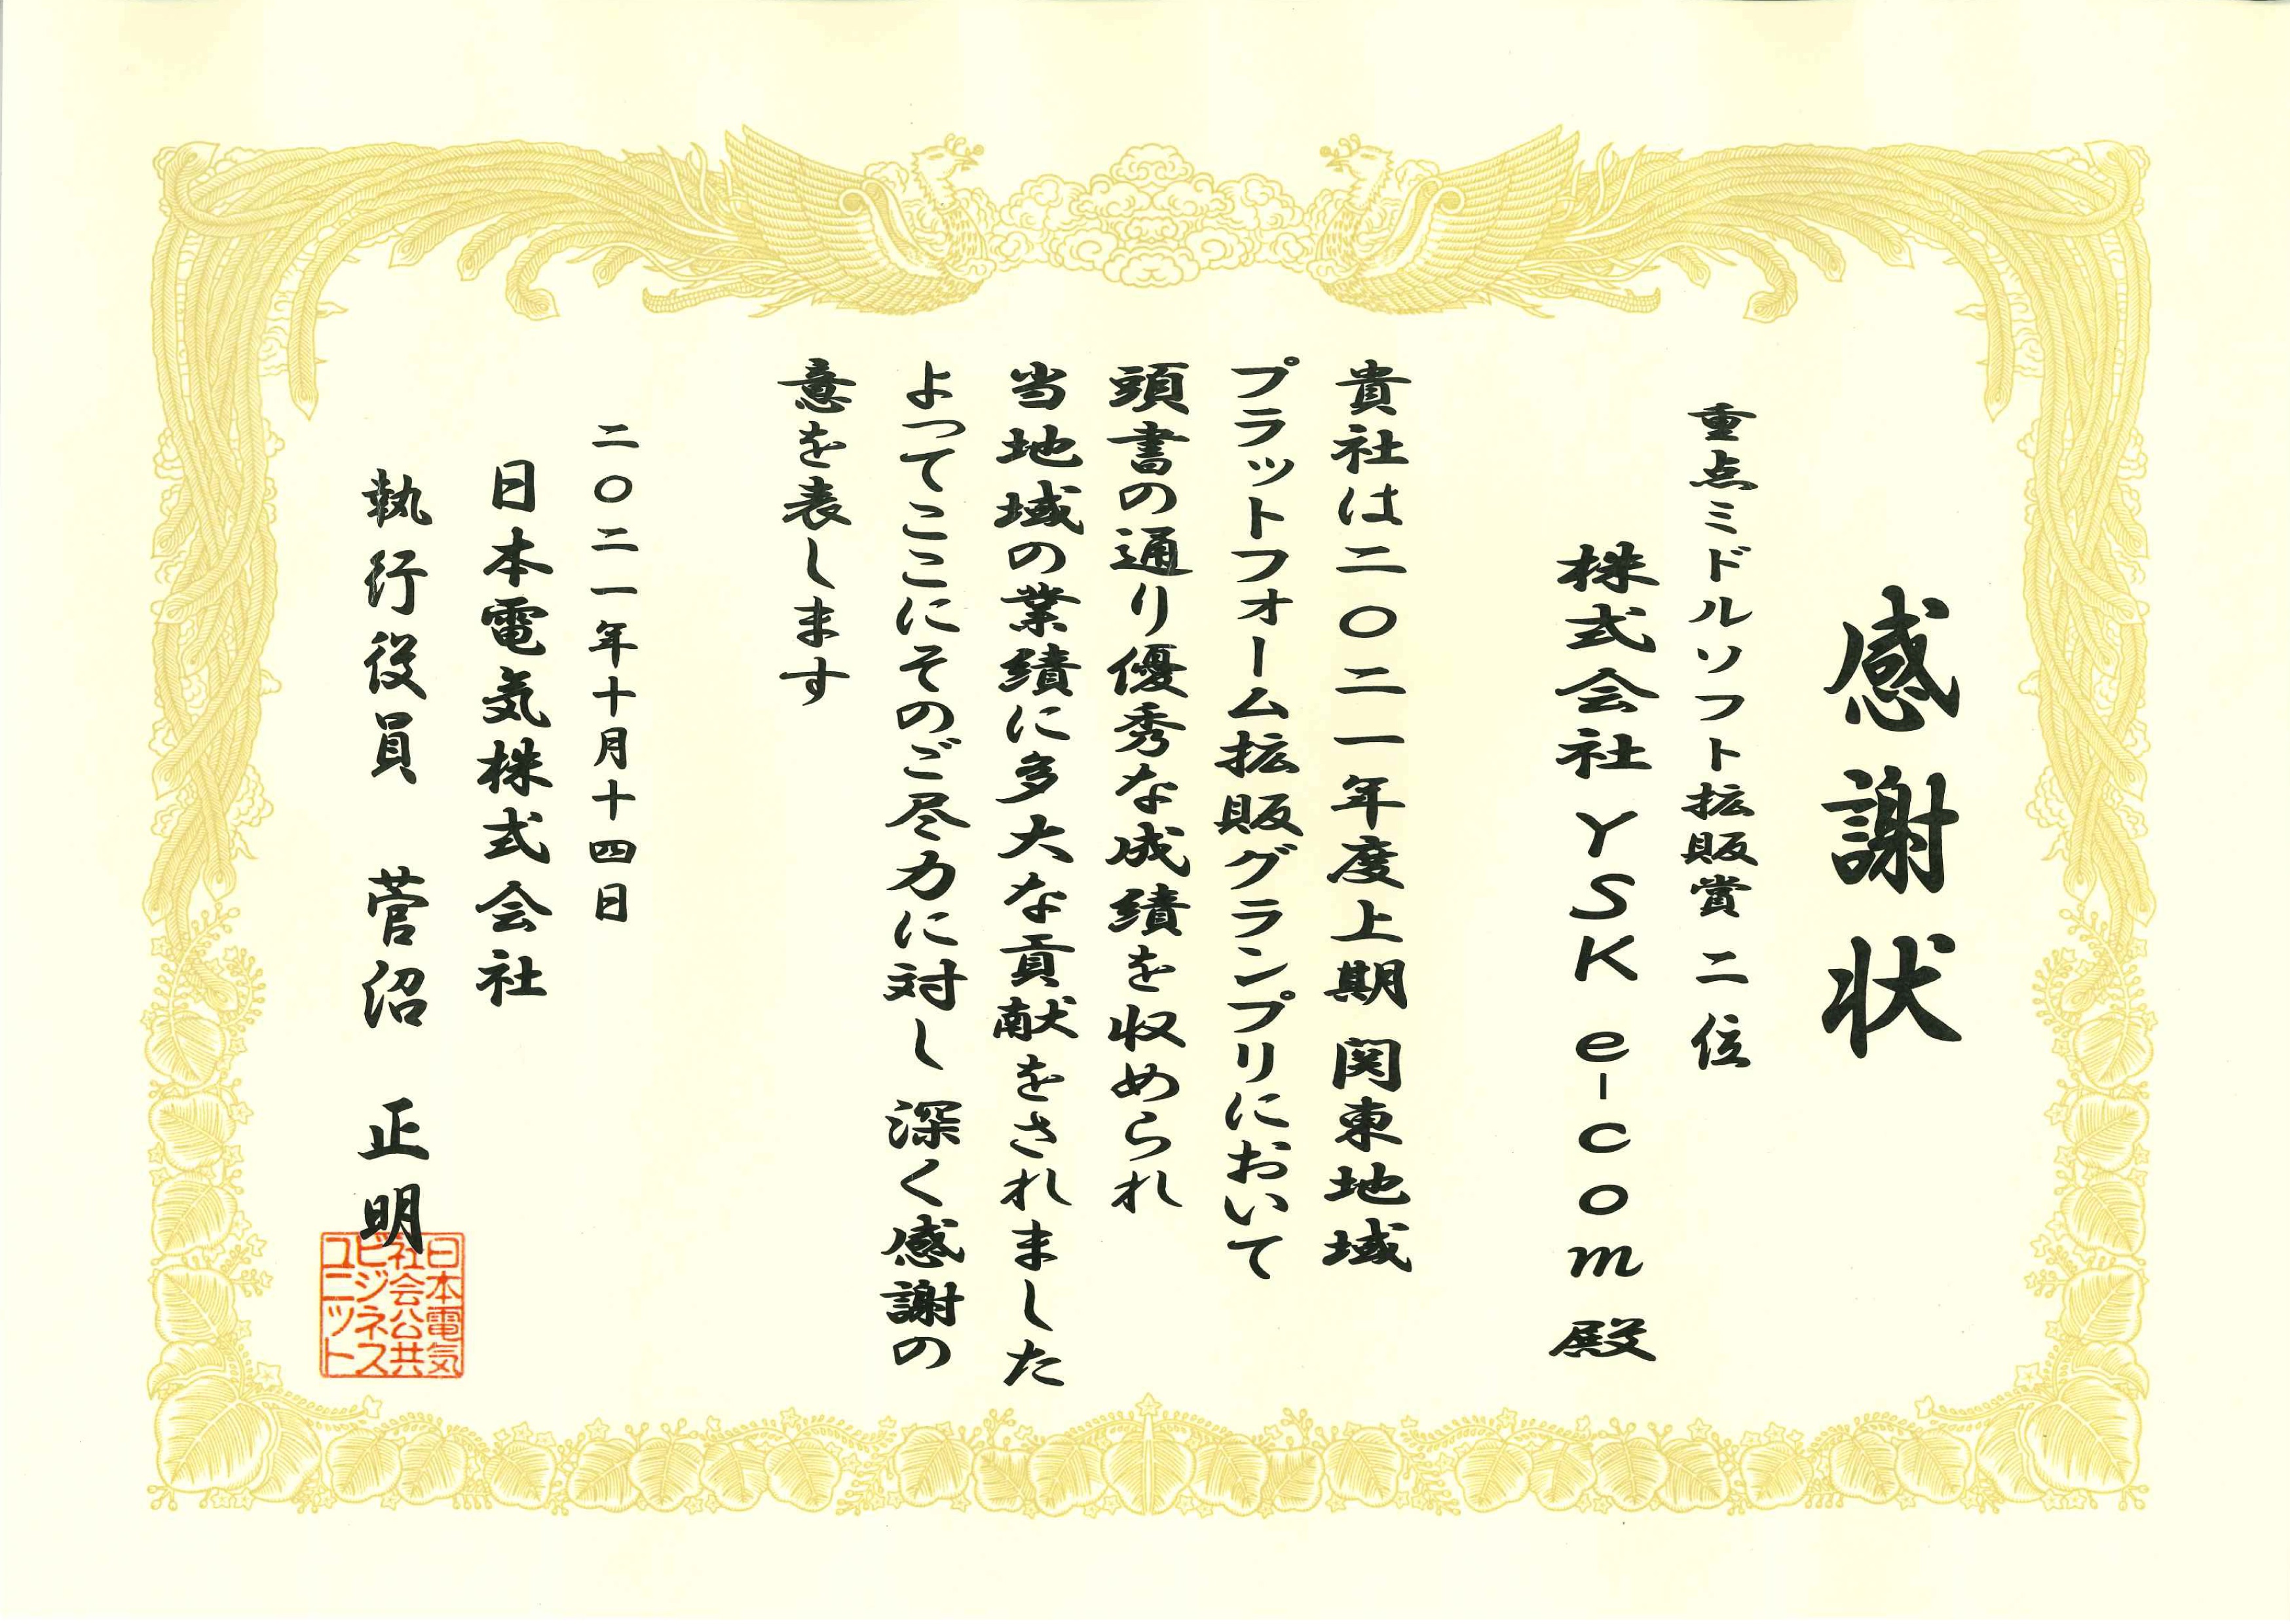 感謝状
重点ミドルソフト拡販賞 二位
株式会社 YSK e-com 殿
貴社は二〇二一年度上期 関東地域
プラットフォーム拡販グランプリにおいて
頭書の通り優秀な成績を収められ
当地域の業績に多大な貢献をされました
よってここにそのご尽力に対し 深く感謝の
意を表します
二〇二一年十月十四日
日本電気株式会社
執行役員 菅沼 正明
日本電気
社会公共
ビジネス
ユニット